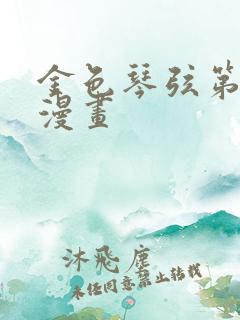 金色琴弦第
漫畫
沐飛塵
未经同意禁止转载